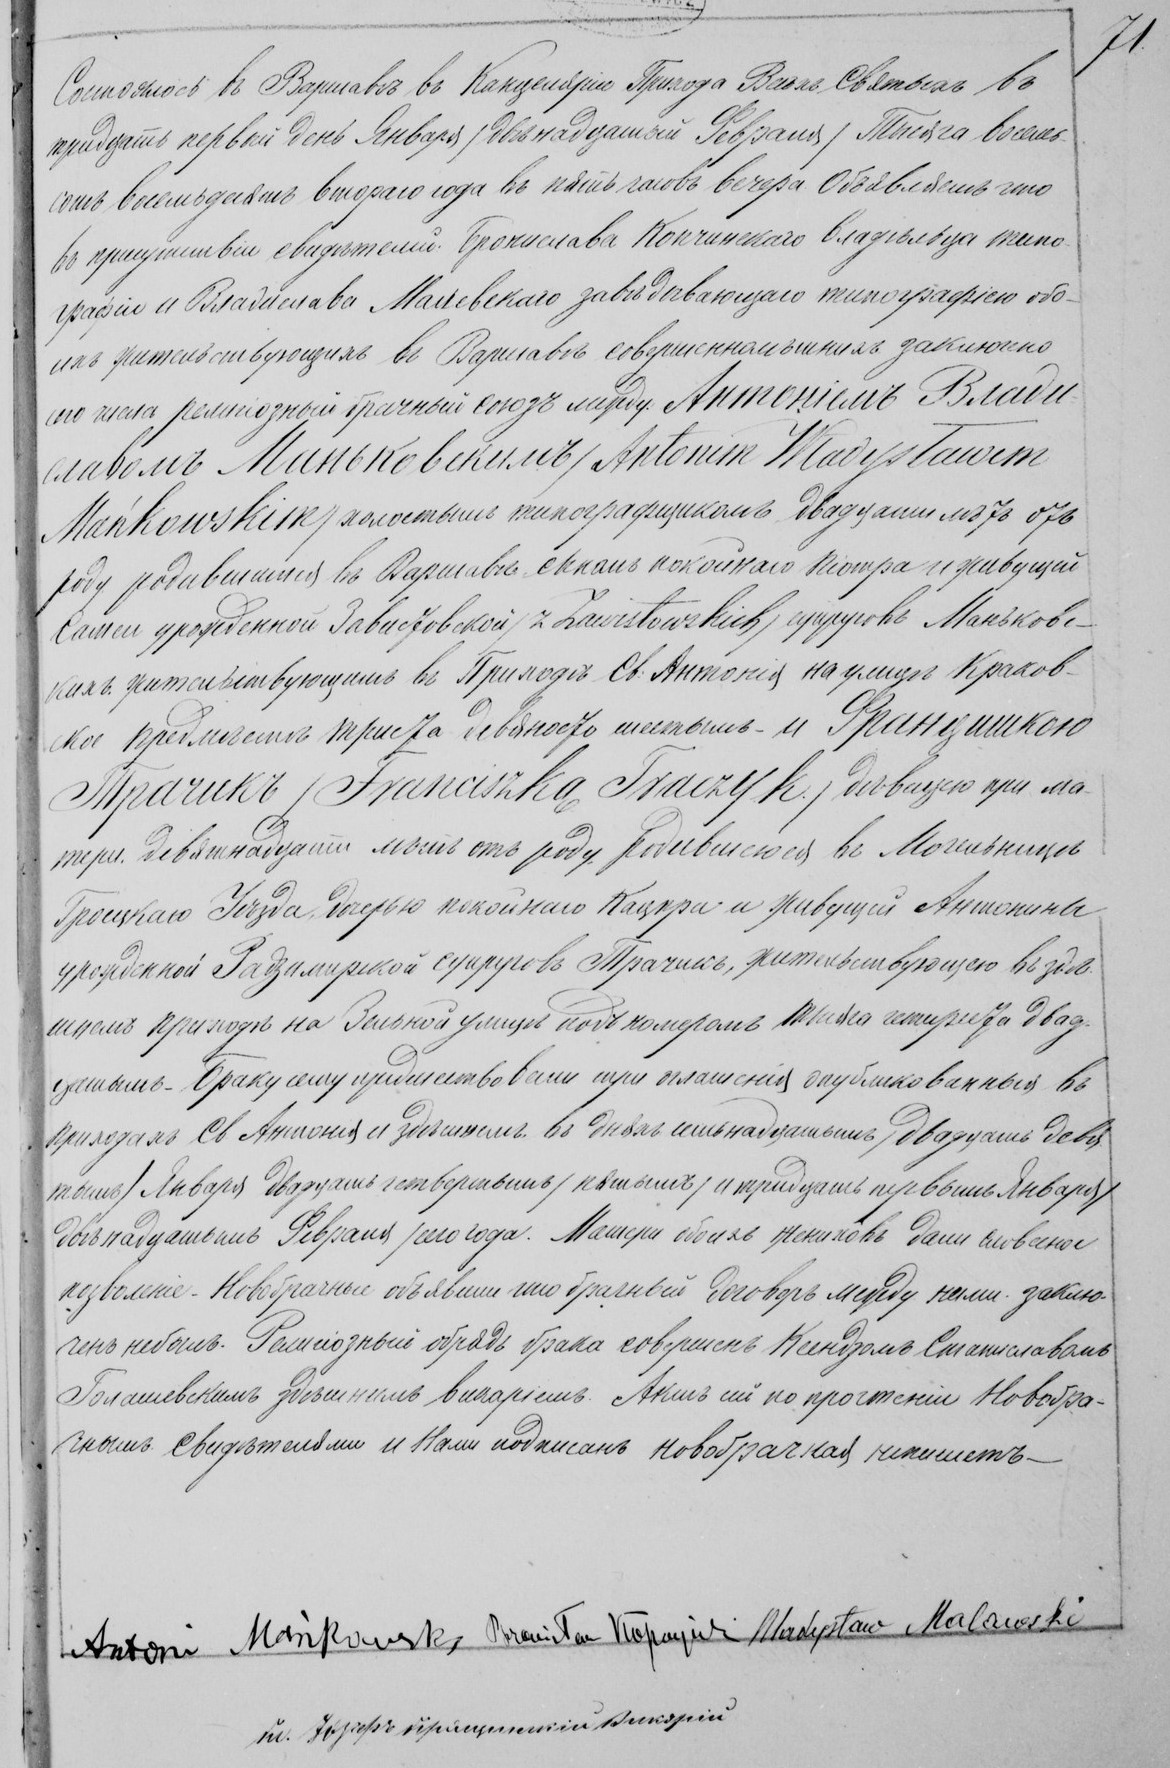 71.
Состоялось въ Варшавѣ въ Канцеляріи Прихода Всѣхъ Святыхъ въ
тридцать первый день Января / двѣнадцатый Февраля / Тысяча восемь-
сотъ восемьдесятъ втораго года въ пять часовъ вечера Объявляемъ что
въ присутствіи свидѣтелей Бронислава Копчинскаго владѣльца типо-
графіи и Владислава Малевскаго завѣдывающаго типографіею обо-
ихъ жительствующихъ въ Варшавѣ совершеннолѣтнихъ заключенъ
сего числа религіозный брачный союзъ между Антоніемъ Влади-
славомъ Маньковскимъ / Antonim Władysławem
Mańkowskim / холостымъ типографщикомъ двадцати лѣтъ отъ
роду родившимся въ Варшавѣ сыномъ покойнаго Піотра и живущей
Саломеи урожденной Завистовской / z Zawistowskich / супруговъ Маньковс-
кихъ жительствующимъ въ Приходѣ Св. Антонія на улицѣ Краков-
ское предмѣстье триста девяносто шестымъ - и Францишкою
Трачикъ / Franciszką Traczyk. / дѣвицею при ма-
тери девятнадцати лѣтъ отъ роду родившеюся въ Могельницѣ
Гроецкаго Уѣзда, дочерью покойнаго Кацпра и живущей Антонины
урожденной Радзимирской супруговъ Трачикъ, жительствующею въ здѣ-
шнемъ приходѣ на Зельной улицѣ подъ номеромъ тысяча четыреста двад-
цатымъ - Браку сему предшествовали три оглашенія опубликованныя въ
приходахъ Св Антонія и здѣшнемъ въ дняхъ семьнадцатымъ / двадцать девя-
тымъ / Января двадцать четвертымъ / пятымъ / и тридцать первымъ Января /
двѣнадцатымъ Февраля / сего года. Матери обоихъ жениховъ дали словесное
позволеніе - Новобрачные объявили что брачный договоръ между ними заклю-
ченъ небылъ. Религіозный обрядъ брака совершенъ Ксендзомъ Станиславомъ
Голашевскимъ здѣшнимъ викаріемъ. Актъ сей по прочтеніи Новобра-
чнымъ Свидѣтелями и Нами подписанъ новобрачная непишетъ—
Antoni Mańkowski Bronisław Kopczyński Władysław Malewski